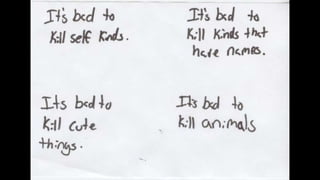 It's bad to
Kill self kinds.
It's bad to
Kill kinds that
have names.
Its bad to
Kill cute
things.
It's bad to
Kill animals